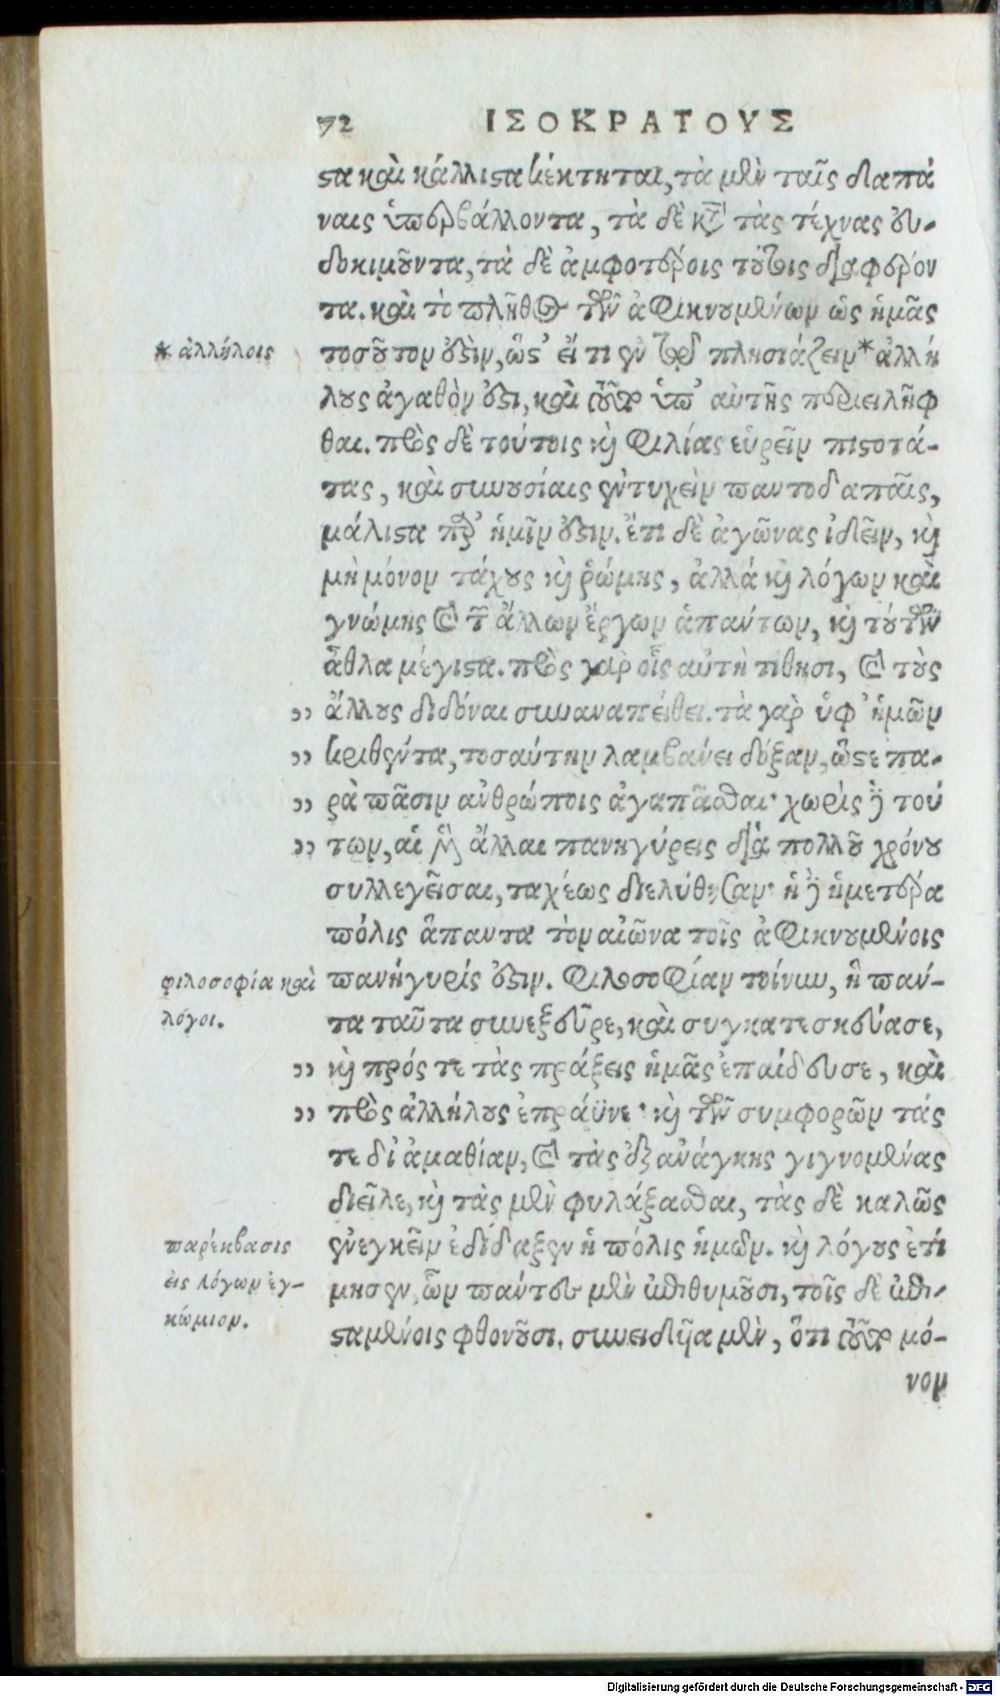 72 ΙΣΟΚΡΑΤΟΥΣ
στα καὶ κάλλιστα κέκτηται, τὰ μὲν ταῖς δαπά
ναις ὑπερβάλλοντα, τὰ δὲ κατὰ τὰς τέχνας εὐ-
δοκιμοῦντα, τὰ δὲ ἀμφοτέροις τούτοις διαφέρον
τα. καὶ τὸ πλῆθος τῶν ἀφικνουμένων ὡς ἡμᾶς
* ἀλλήλοις
τοσοῦτον ἐστὶν, ὥστ' εἴ τι ἐν τῷ πλησιάζειν* ἀλλή
λους ἀγαθὸν ἐστι, καὶ τοῦθ' ὑπ' αὐτῆς περιειλῆφ
θαι. πρὸς δὲ τούτοις καὶ φιλίας εὑρεῖν πιστοτά-
τας, καὶ συνουσίαις ἐντυχεῖν παντοδαπαῖς,
μάλιστα παρ' ἡμῖν ἐστιν. ἔτι δὲ ἀγῶνας ἰδεῖν, καὶ
μὴ μόνον τάχους καὶ ῥώμης, ἀλλὰ καὶ λόγων καὶ
γνώμης καὶ τῶν ἄλλων ἔργων ἁπάντων, καὶ τούτων
ἆθλα μέγιστα. πρὸς γὰρ οἷς αὐτὴ τίθησι, καὶ τοὺς
,, ἄλλους διδόναι συναναπείθει. τὰ γὰρ ὑφ' ἡμῶν
,, κριθέντα, τοσαύτην λαμβάνει δόξαν, ὥστε πα-
,, ρὰ πᾶσιν ἀνθρώποις ἀγαπᾶσθαι· χωρὶς δὲ τού
,, των, αἱ μὲν ἄλλαι πανηγύρεις διὰ πολλοῦ χρόνου
συλλεγεῖσαι, ταχέως διελύθησαν· ἡ δὲ ἡμετέρα
πόλις ἅπαντα τὸν αἰῶνα τοῖς ἀφικνουμένοις
φιλοσοφία καὶ
λόγοι.
πανήγυρίς ἐστιν. φιλοσοφίαν τοίνυν, ἣ πάν-
τα ταῦτα συνεξεῦρε, καὶ συγκατεσκεύασε,
,, καὶ πρός τε τὰς πράξεις ἡμᾶς ἐπαίδευσε, καὶ
,, πρὸς ἀλλήλους ἐπράϋνε· καὶ τῶν συμφορῶν τάς
τε δι' ἀμαθίαν, καὶ τὰς ἐξ ἀνάγκης γιγνομένας
διεῖλε, καὶ τὰς μὲν φυλάξασθαι, τὰς δὲ καλῶς
παρέκβασις
εἰς λόγων ἐγ-
κώμιον.
ἐνεγκεῖν ἐδίδαξεν ἡ πόλις ἡμῶν. καὶ λόγους ἐτί
μησεν, ὧν πάντες μὲν ἐπιθυμοῦσι, τοῖς δὲ ἐπι-
σταμένοις φθονοῦσι. συνειδυῖα μὲν, ὅτι τοῦτο μό-
νον
Digitalisierung gefördert durch die Deutsche Forschungsgemeinschaft - DFG